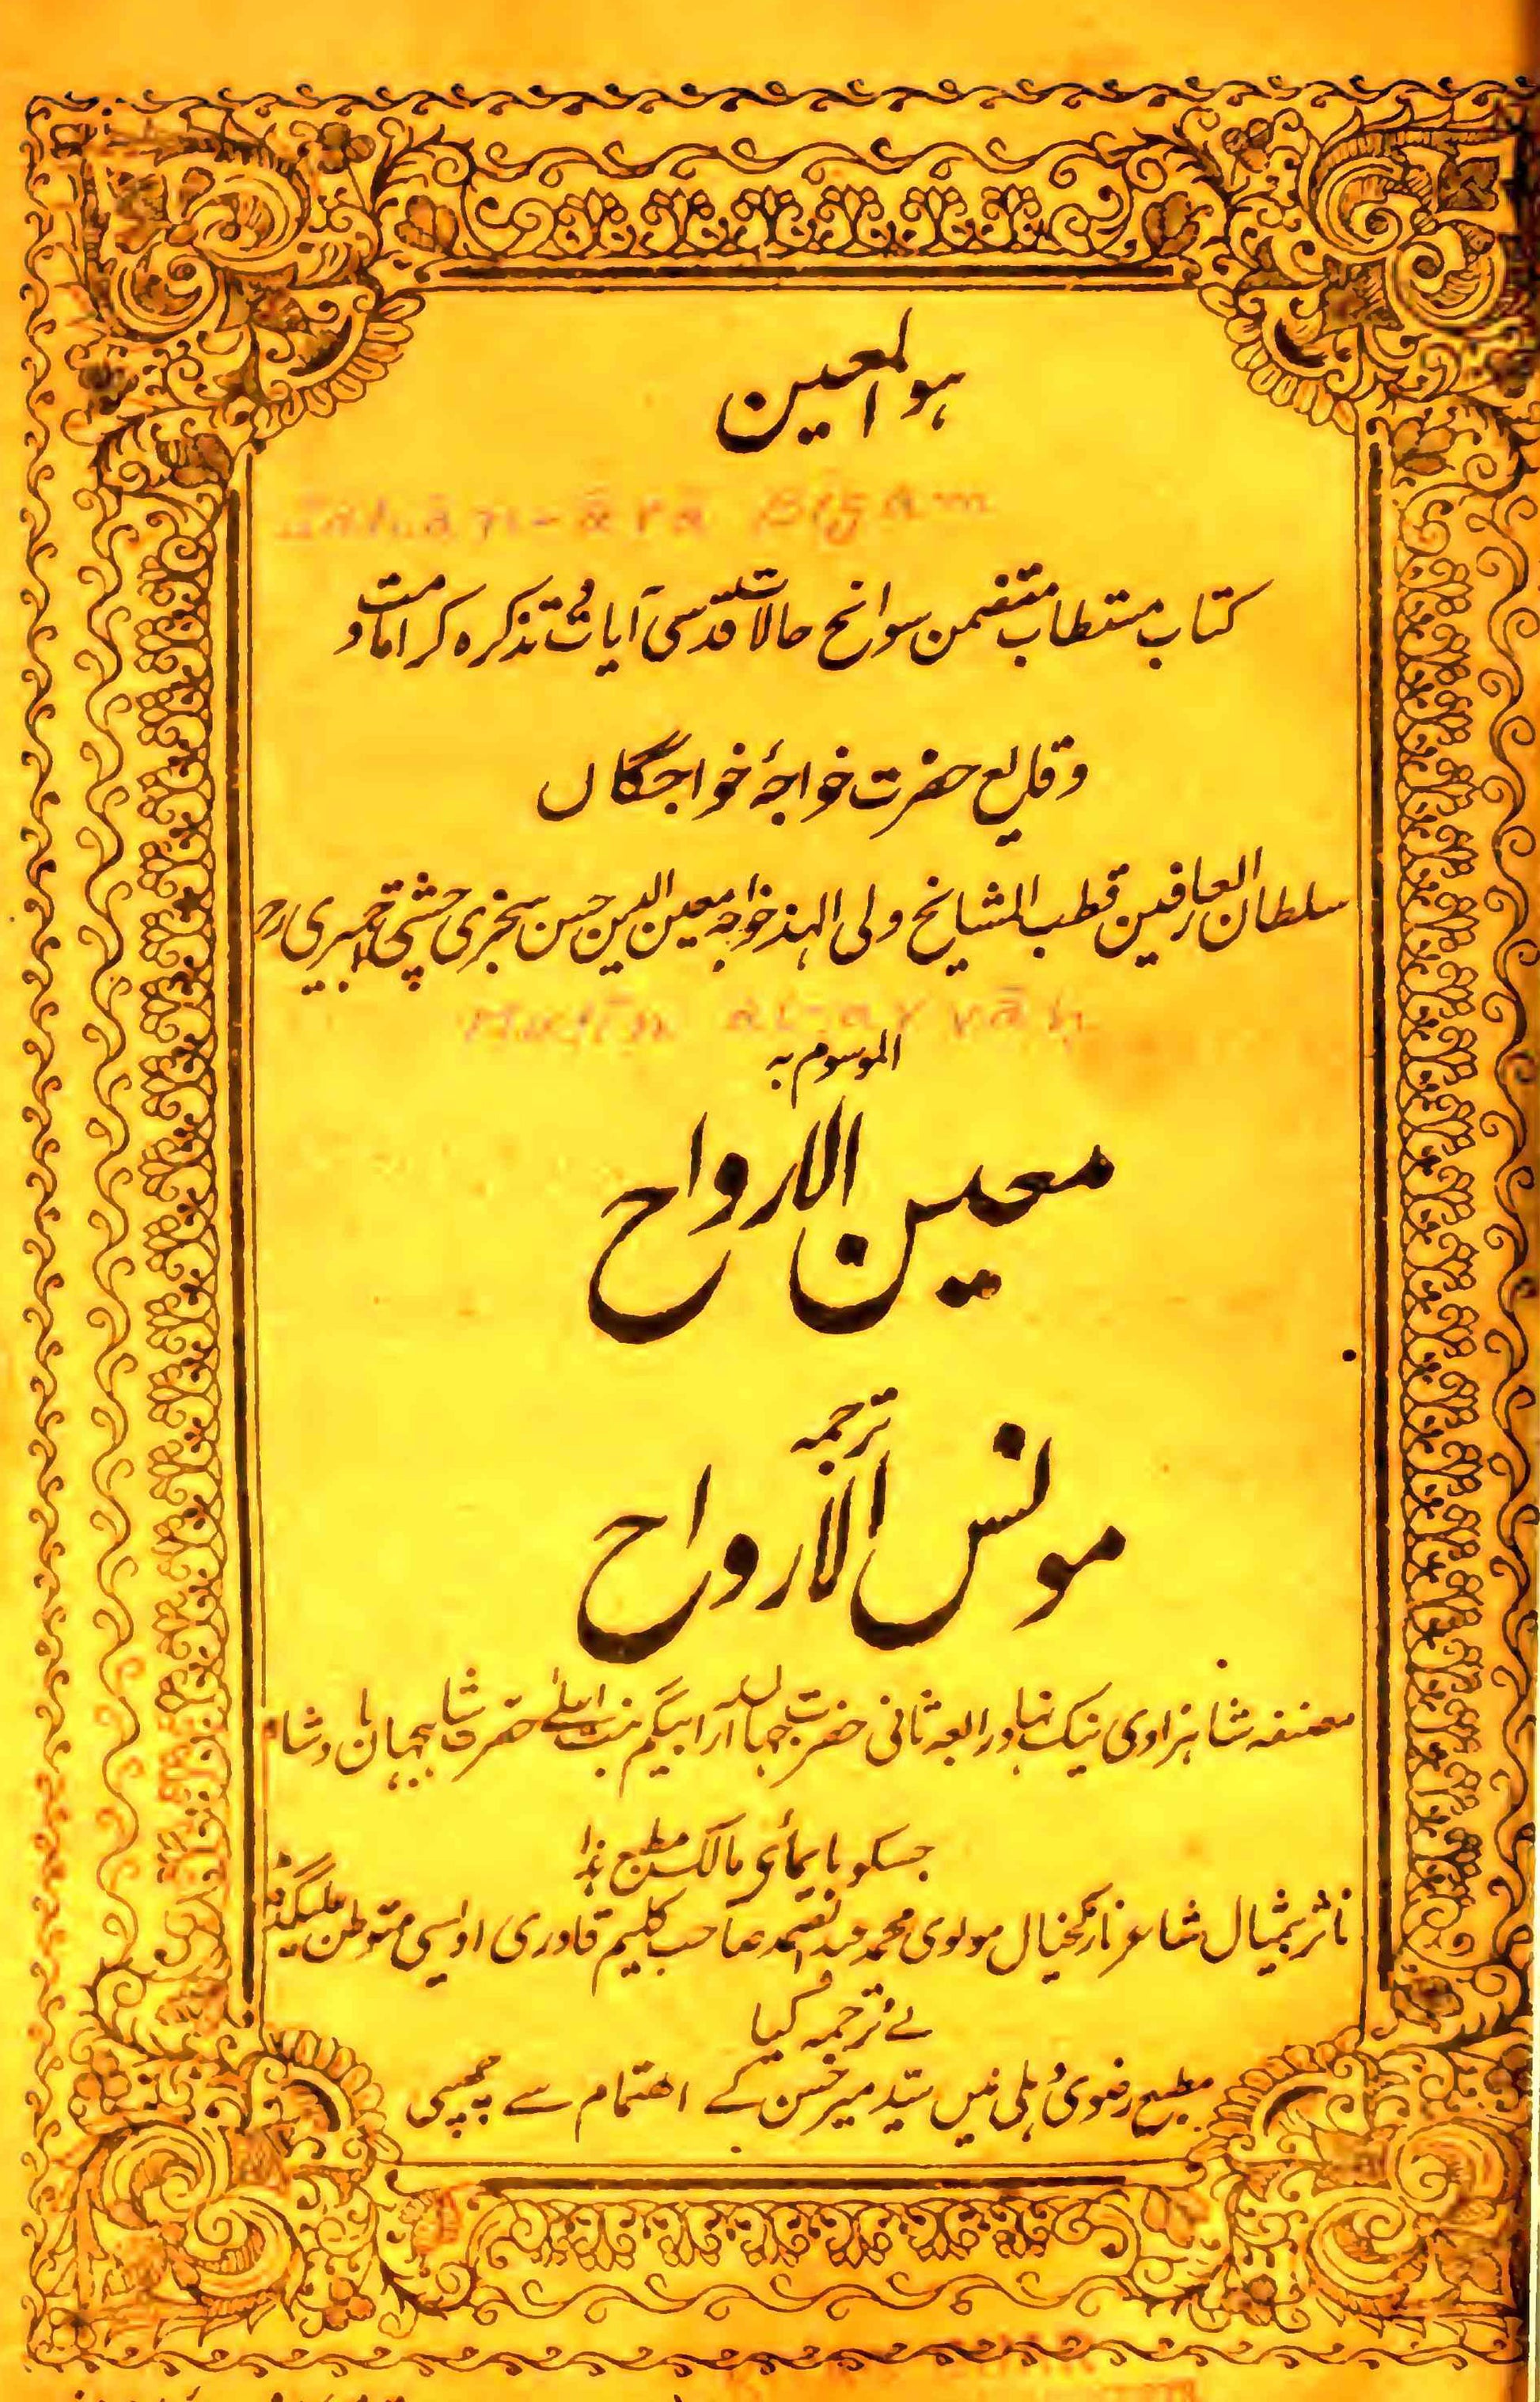 ہوالمعین
Jahān-ārā Bigam
کتاب مستطاب متضمن سوانح حالات قدسی آیات و تذکرہ کرامات و
وقایع حضرت خواجۂ خواجگاں
سلطان العارفین قطب المشایخ ولی الہند خواجہ معین الدین حسن سنجری چشتی اجمیری رح
Mu'īn al-arvāḥ
الموسوم بہ
معین الارواح
ترجمہ
مونس الارواح
مصنفہ شاہزادی نیک نہاد رابعہ ثانی حضرت جہاں آرا بیگم بنت حضرت شاہجہاں بادشاہ
جسکو بایمائ مالک مطبع ہذا
ناثر بیمثال شاعر نازکخیال مولوی محمد عبدالصمد صاحب کلیم قادری اویسی متوطن
نے ترجمہ کیا
مطبع رضوی دہلی میں سید میر حسن کے اہتمام سے چھپی